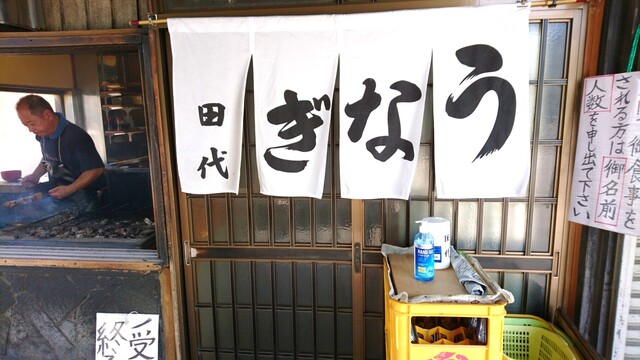 うなぎ
田代
御食事を
される方は御名前
人数を申し出て下さい
受
終